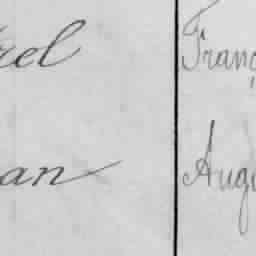 rel Franç
an Augu